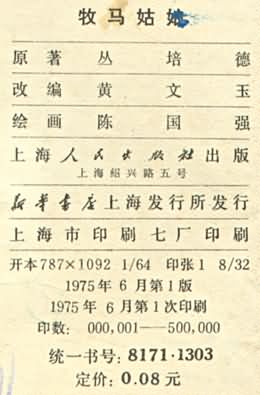 牧马姑娘
原著 丛培德
改编 黄文玉
绘画 陈国强
上海人民出版社出版
上海绍兴路五号
新华书店上海发行所发行
上海市印刷七厂印刷
开本787×1092 1/64 印张1 8/32
1975年6月第1版
1975年6月第1次印刷
印数：000,001——500,000
统一书号：8171·1303
定价：0.08元